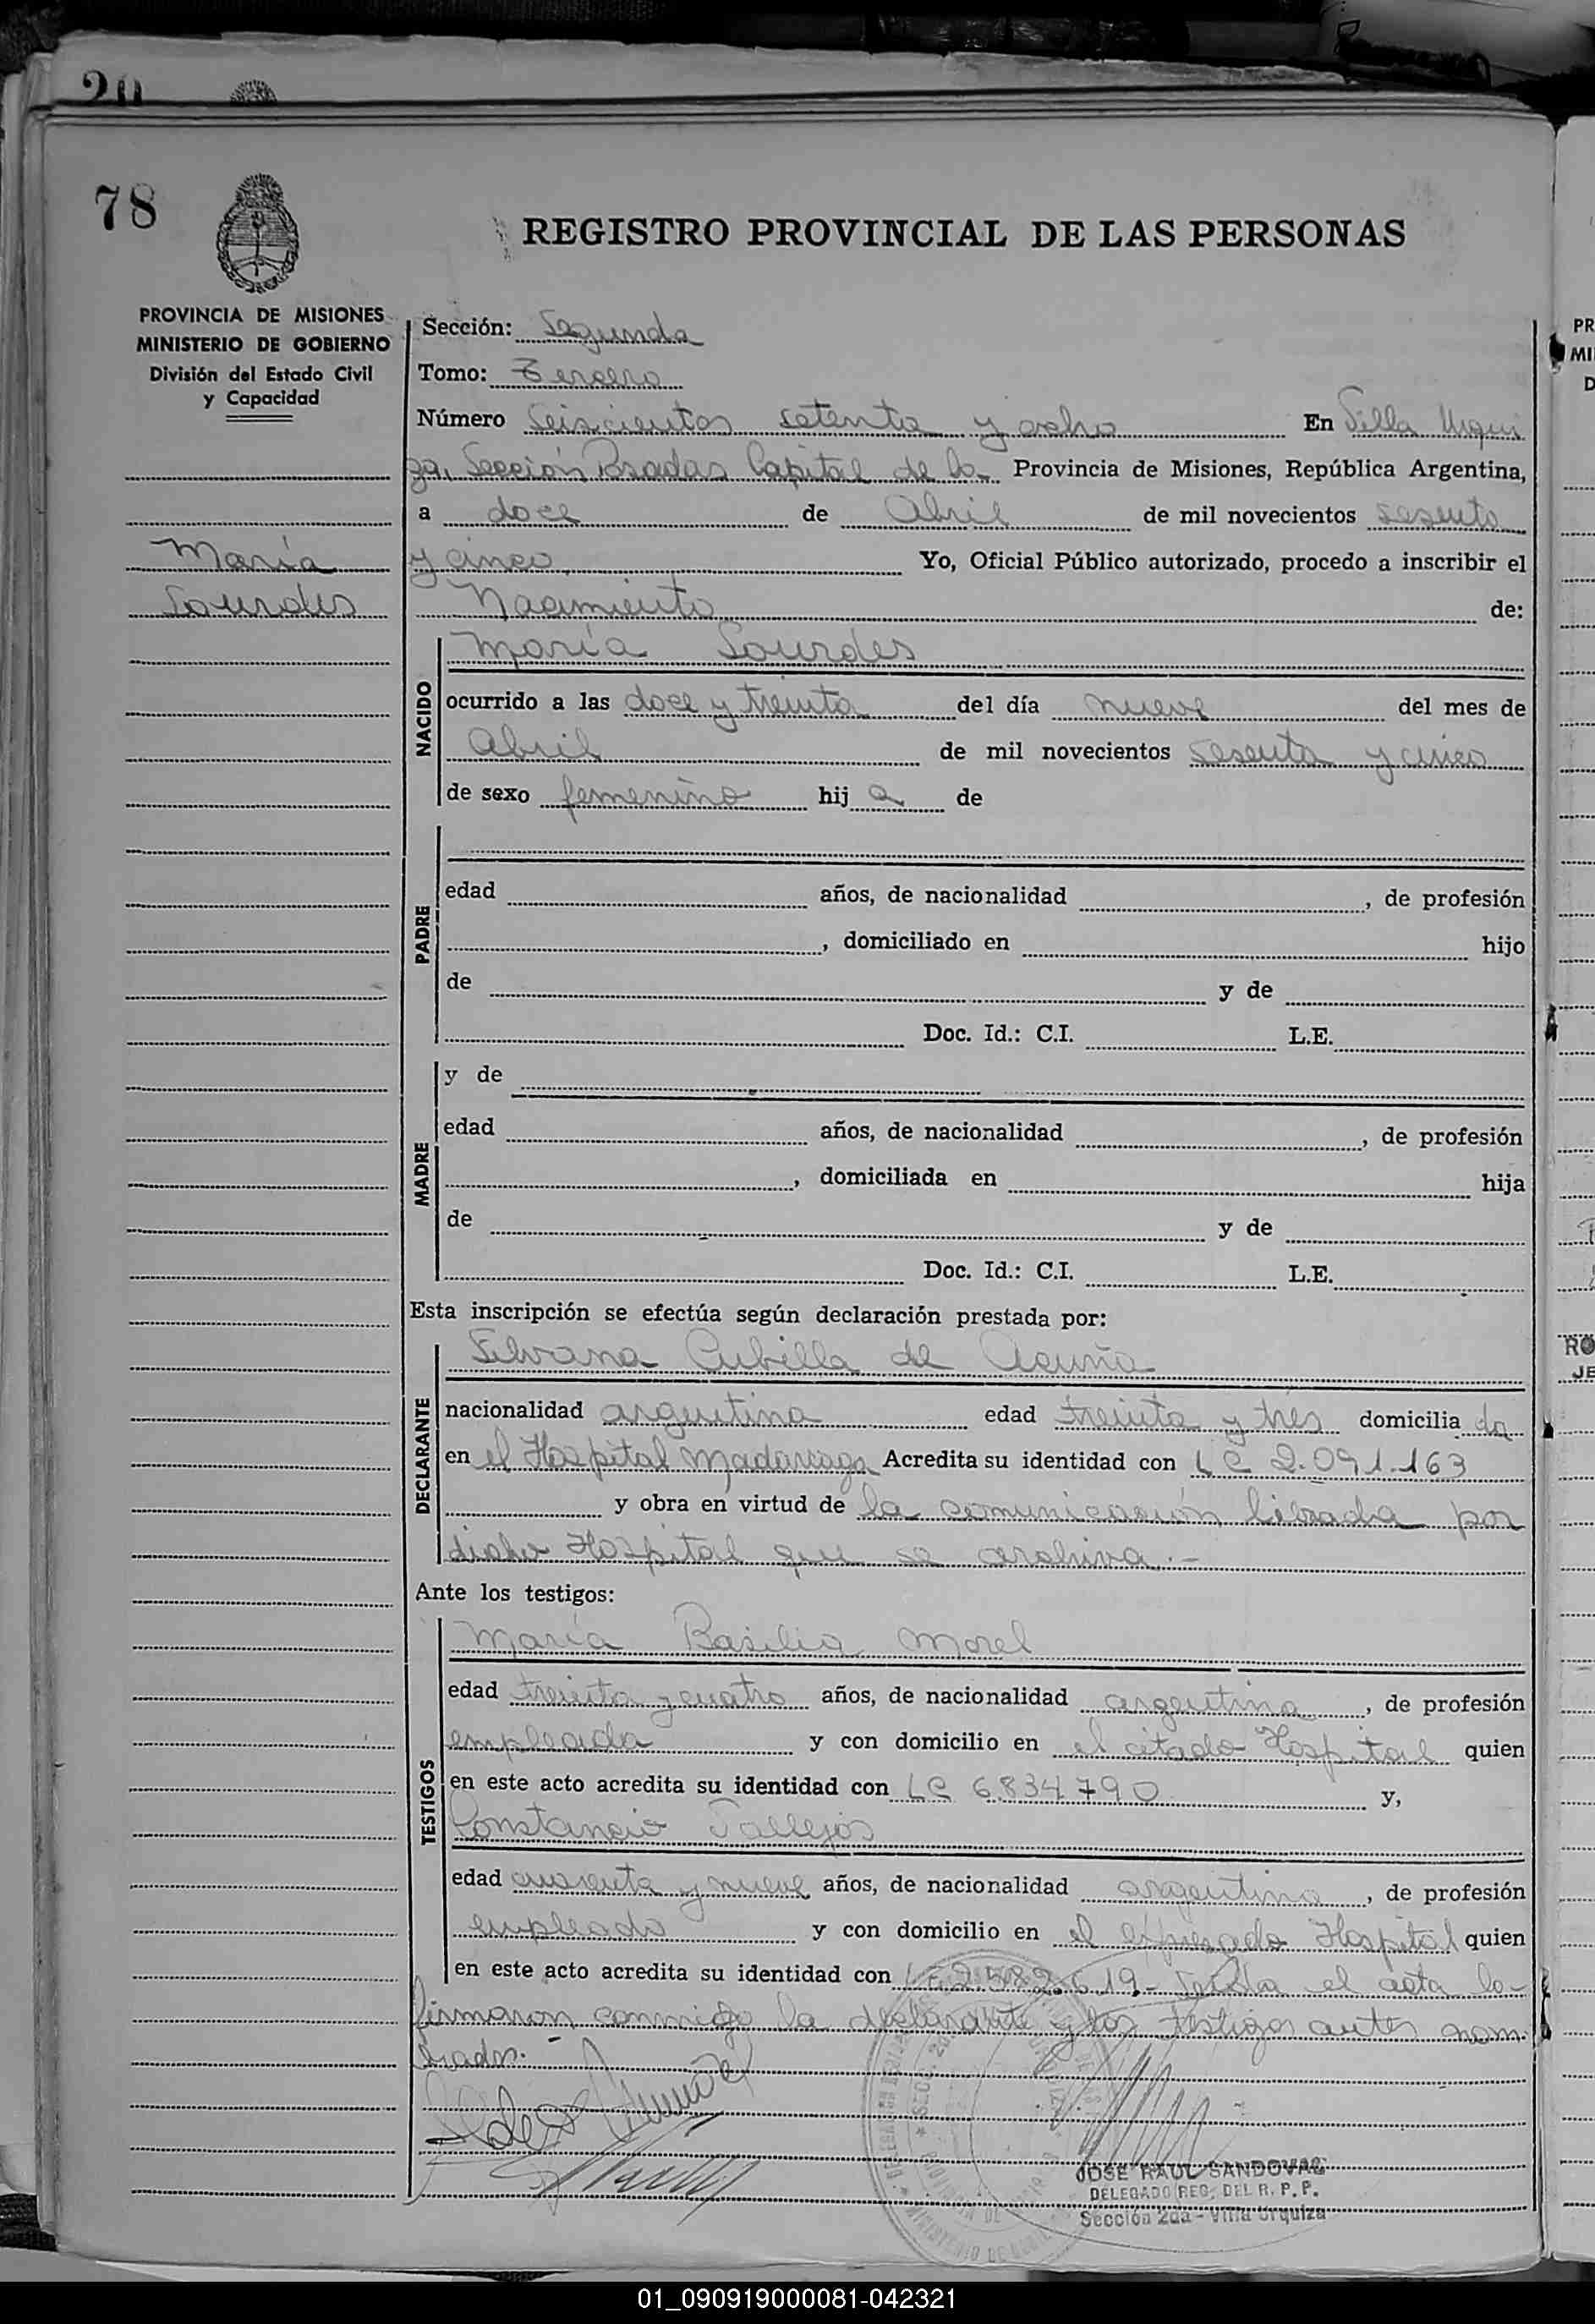 20
78
REGISTRO PROVINCIAL DE LAS PERSONAS
PROVINCIA DE MISIONES
MINISTERIO DE GOBIERNO
División del Estado Civil
y Capacidad
María
Lourdes
Sección: Segunda
Tomo: Tercero
Número Seiscientos setenta y ocho En Villa Urqui
za, Sección Posadas Capital de la Provincia de Misiones, República Argentina,
a doce de Abril de mil novecientos sesenta
y cinco, Yo, Oficial Público autorizado, procedo a inscribir el
Nacimiento de:
NACIDO
María Lourdes
ocurrido a las doce y treinta del día nueve del mes de
Abril de mil novecientos sesenta y cinco
de sexo femenino hij a de
PADRE
edad años, de nacionalidad , de profesión
, domiciliado en hijo
de y de
Doc. Id.: C.I. L.E.
MADRE
y de
edad años, de nacionalidad , de profesión
, domiciliada en hija
de y de
Doc. Id.: C.I. L.E.
Esta inscripción se efectúa según declaración prestada por:
DECLARANTE
Silvana Cubilla de Acuña
nacionalidad argentina edad treinta y tres domicilia da
en el Hospital Madariaga Acredita su identidad con L C 2.091.163
y obra en virtud de la comunicación librada por
dicho Hospital que se archiva.-
Ante los testigos:
TESTIGOS
María Basilia Morel
edad treinta y cuatro años, de nacionalidad argentina, de profesión
empleada y con domicilio en el citado Hospital quien
en este acto acredita su identidad con LC 6.834.790 y,
Constancio Vallejos
edad cuarenta y nueve años, de nacionalidad argentina, de profesión
empleado y con domicilio en el expresado Hospital quien
en este acto acredita su identidad con 2.582.619.- Leída el acta la
firmaron conmigo la declarante y los testigos antes nom-
brados.-
JOSE RAUL SANDOVAL
DELEGADO REG. DEL R. P. P.
Sección 2da - Villa Urquiza
01_090919000081-042321